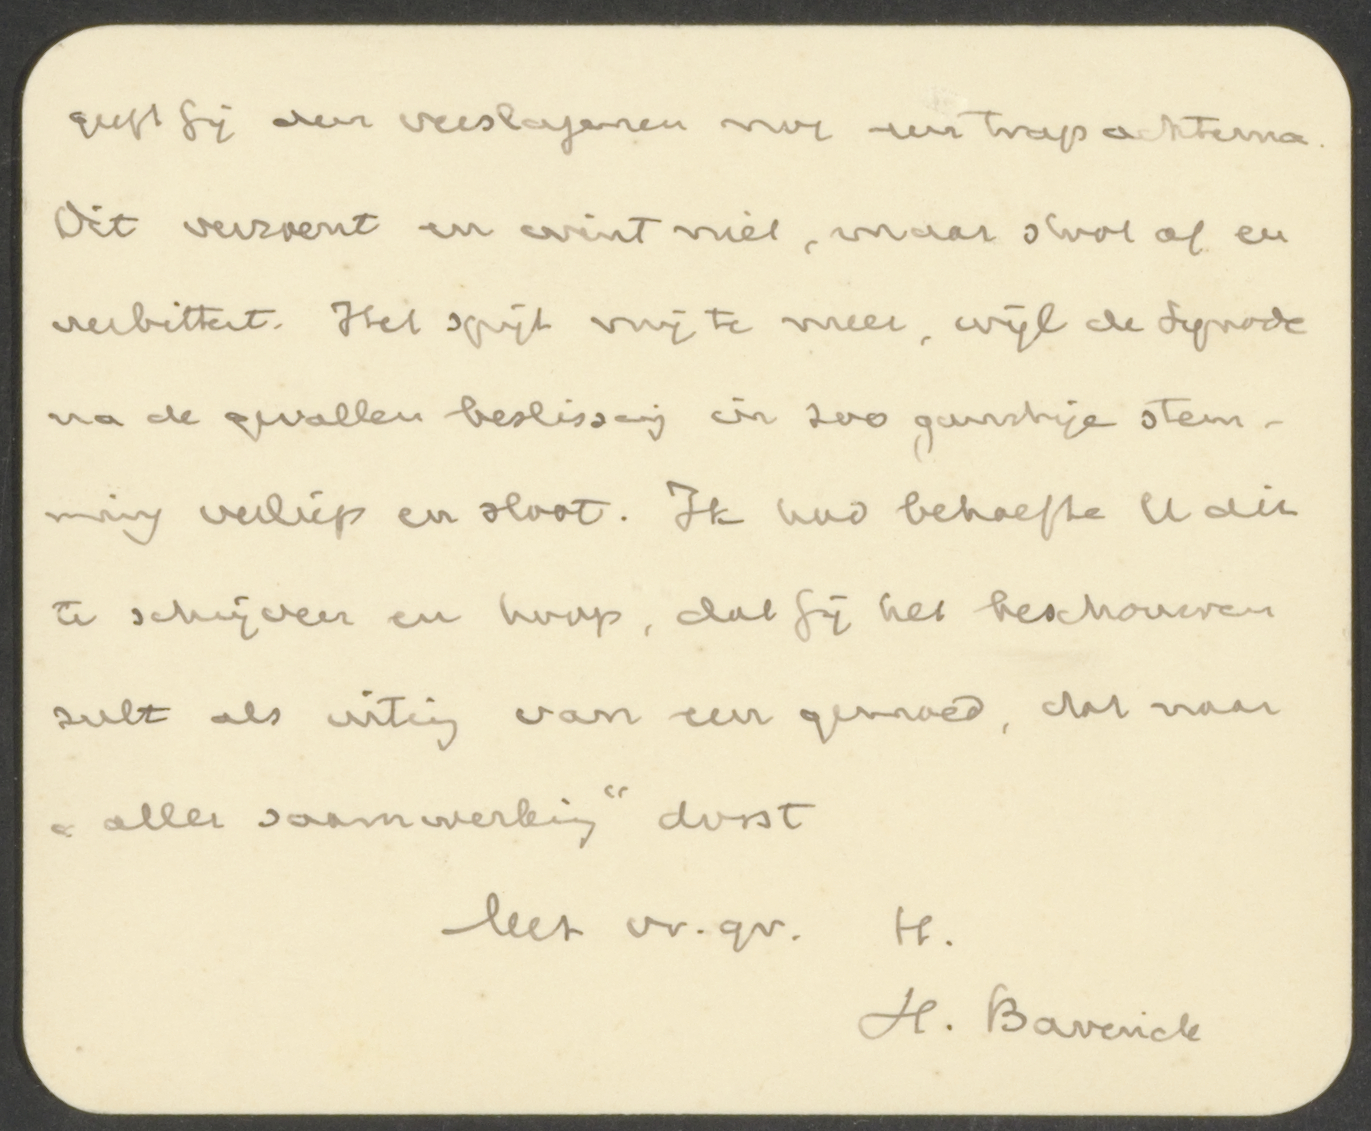 geeft gij den verslagenen nog een trap achterna.
Dit verzoent en wint niet, maar stoot af en
verbittert. Het spijt mij te meer, wijl de Synode
na de gevallen beslissing in zoo gunstige stem-
ming verliep en sloot. Ik had behoefte U dit
te schrijven en hoop, dat gij het beschouwen
zult als uiting van een gemoed, dat naar
„aller saamwerking“ dorst
Met vr. gr. H.
H. Bavinck